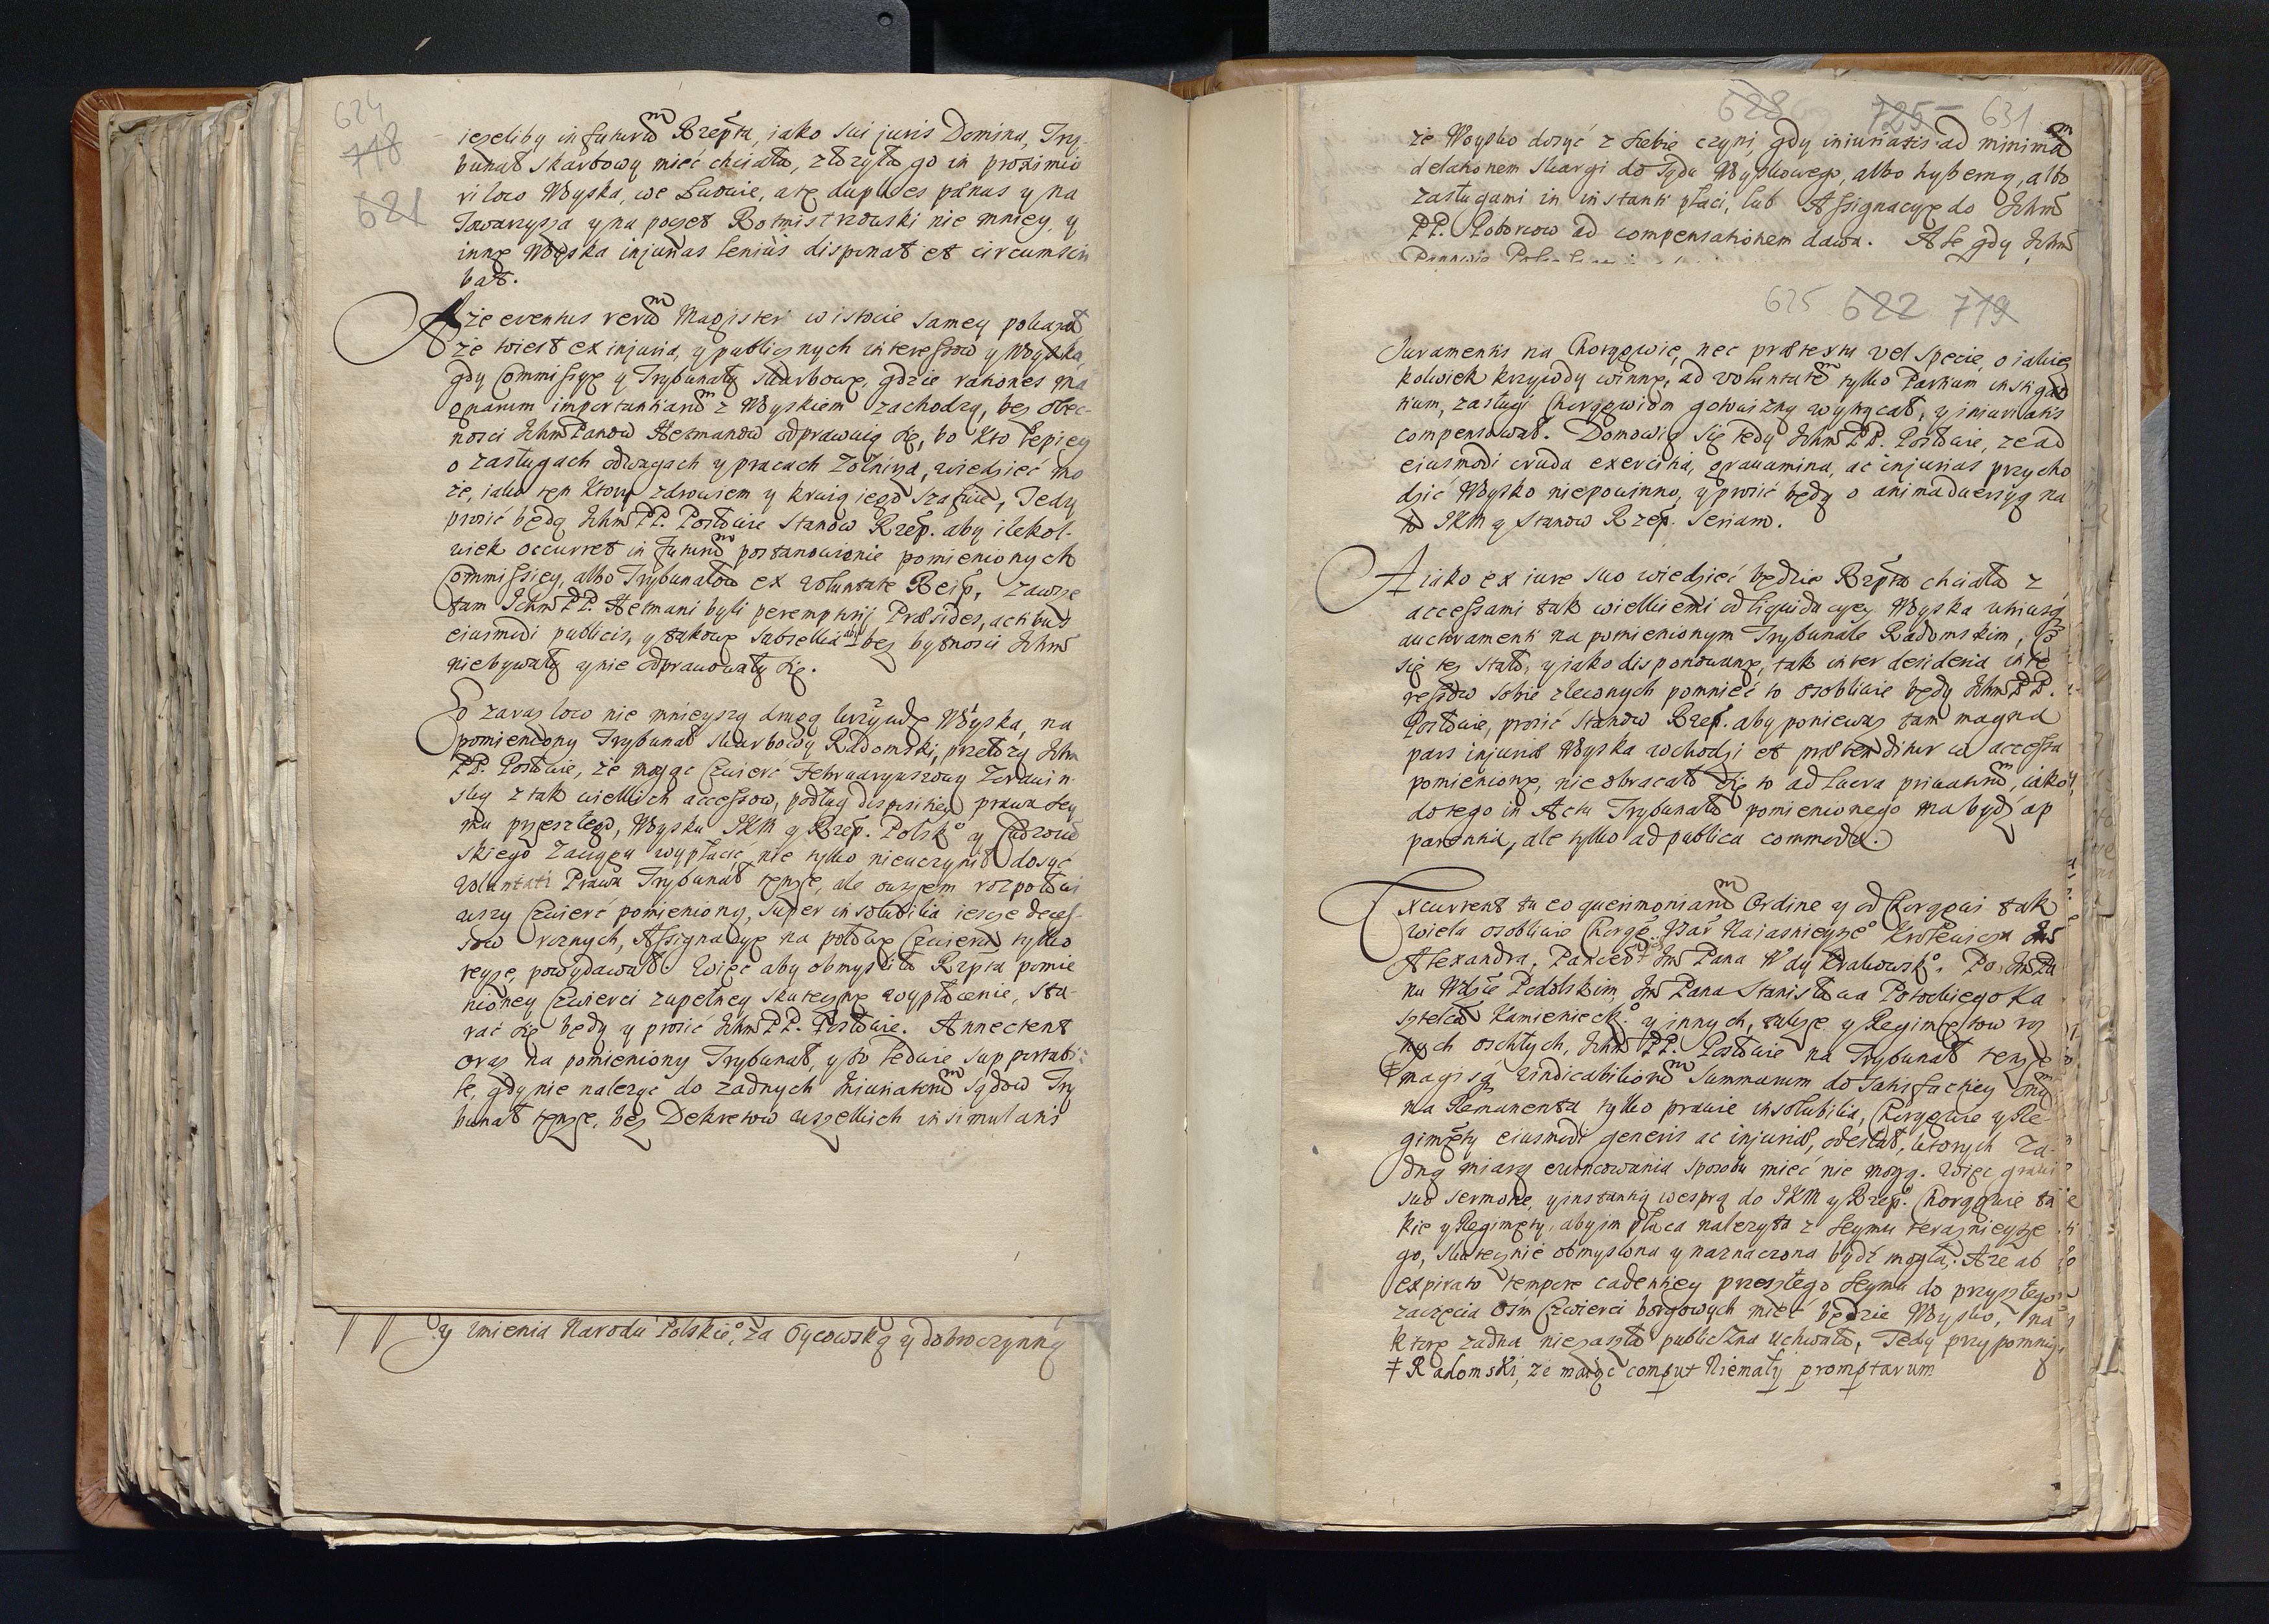 624
718
621
ieżeliby in futurum Rzepta, iako sui juris Domina, Try-
bunał skarbowy mieć chciała, złożyła go in proximio
ri loco Woyska, we Lwowie, aże duplices pænas y na
Towarzysza y na poczet Rotmistrzowski nie mniey, y
inne Woyska injurias lenius disponat et circumscri
bat.
A że eventus rerum Magister w istocie samey pokazał
że wiest ex injuria, y publicznych interessow y Woyska,
gdy Commissye y Trybunały skarbowe, gdzie rationes ma
gnarum importantiarum z Woyskiem zachodzą, bez obec-
nosci Ichm Panow Hetmanow odprawuią się, bo kto lepiey
o zasługach odwagach y pracach Zołnirza, wiedzieć mo
że, iako ten ktory zdrowiem y krwią iego szafuie, Tedy
prosić będą Ichm PP. Posłowie Stanow Rzep. aby ilekol-
wiek occurret in futurum postanowienie pomienionych
Commissiey, albo Trybunałow ex voluntate Reip, zawsze
tam Ichm PP. Hetmani byli peremptorij Præsides, actibus
eiusmodi publicis, y takowe subsellia aby bez bytnosci Ichm
niebywały y nie odprawowały się.
Co zaraz loco nie mnieyszy drugą krzywdę Woyska, na
pomieniony Trybunał skarbowy Radomski, przełożą Ichm
PP. Posłowie, że mogąc Czwierć Februaryuszową
sley z tak wielkich accessow, podług disposiciey prawa Sey
mu przeszłego, Woysku JKM y Rzep. Polsk° y Cudzoziem
skiego Zaciągu wypłacić, nie tylko nieuczynił dosyć
voluntati Prawa Trybunał tenże, ale owszem rozpołowi
wszy Czwierć pomienioną, super insolubilia ieszcze deces-
sow rożnych, Assignacye na połowę Czwierci tylko
teyże, powydawał. Więc aby obmysliła Rzpta pomie
nioney Czwierci zupełney skuteczne wypłacenie, sta-
rać się będą y prosić Ichm PP. Posłowie. Annectent
oraz na pomieniony Trybunał, y to ledwie supportabi-
le, gdy nie należąc do żadnych Iniuriatorum sądow Try
bunał tenże, bez Dekretow wszelkich insimulatis
y Imienia Narodu Polskie°, za Oycowską y dobroczynną
628 725 631
że Woysko dosyć z siebie czyni, gdy iniuriatis ad minimam
delationem skargi do Sądu Woyskowego, albo hyberną, albo
zasługami in instanti płaci, lub Assignacye do Ichm
PP. Poborcow ad compensationem dawa. Ale gdy Ichm
625 622 719
Iuramentis na Chorągwie, nec prætextu vel specie, o iakieg
kolwiek krzywdy winne, ad voluntatem tylko Partium instigan
tium, zasługi Chorągwiom gotowizną wytrącał, y iniuriatis
compensował. Domowią się tedy Ichm PP. Posłowie, że ad
eiusmodi cruda exercitia, gravamina, ac injurias przycho
dzić Woysko niepowinno, y prosić będą o animadwersyą na
to JKM y Stanow Rzep. seriam.
A iako ex iure suo wiedzieć będzie Rzpta chciała z
accessami tak wielkiemi od liquidacyey Woyska utriusq
authoramenti na pomienionym Trybunale Radomskim, Co
się tez stało, y iako disponowane, tak inter desideria inte
ressow sobie zleconych pomnieć to osobliwie będą Ichm PP.
Posłowie, prosić Stanow Rzep. aby ponieważ tam magna
pars injuriæ Woyska wchodzi et prætenditur w accessa
pomienione, nie obracało się to ad lucra privatorum, iako
do tego in Actu Trybunału pomienionego ma bydź ap
parentia, ale tylko ad publica commoda.
Excurrent tu eo querimoniarum Ordine y od Chorągwi tak
wiela osobliwie Chorąg. Nayiasnieysze° Krolewicza Im
Alexandra, Pancer Im Pana Wdy Krakowsk°. Po Im Pa
nu Wdzie Podolskim, Im Pana Stanisława Potockiego Ka
sztelana Kamienieck° y innych, także y Regimentow roz
nych oschłych, Ichm PP. Posłowie na Trybunał tenże
‡ magis vindicabiliorum Summarum do Satisfactiey
na Remanenta tylko prawie insolubilia, Chorągwie y Re-
gimenty eiusmodi generis ac injuriæ, odesłał, ktorych ża-
dną miarą ewinkowania sposobu mieć nie mogą. Więc gravi
suo sermone, y instantią wesprą do JKM y Rzep. Chorągwie ta
kie y Regimenty, aby im płaca należyta z Seymu teraznieysze
go, skutecznie obmyslona y naznaczona bydź mogła. A że ab
expirato tempore cadentiey przeszłego Seymu do przyszłego
zaczęcia ośm Czwierci borgowych mieć będzie Woysko, na
ktore żadna niezaszła publiczna uchwała, Tedy przypomnią
‡ Radomski, że maiąc comput Niemały promptarum